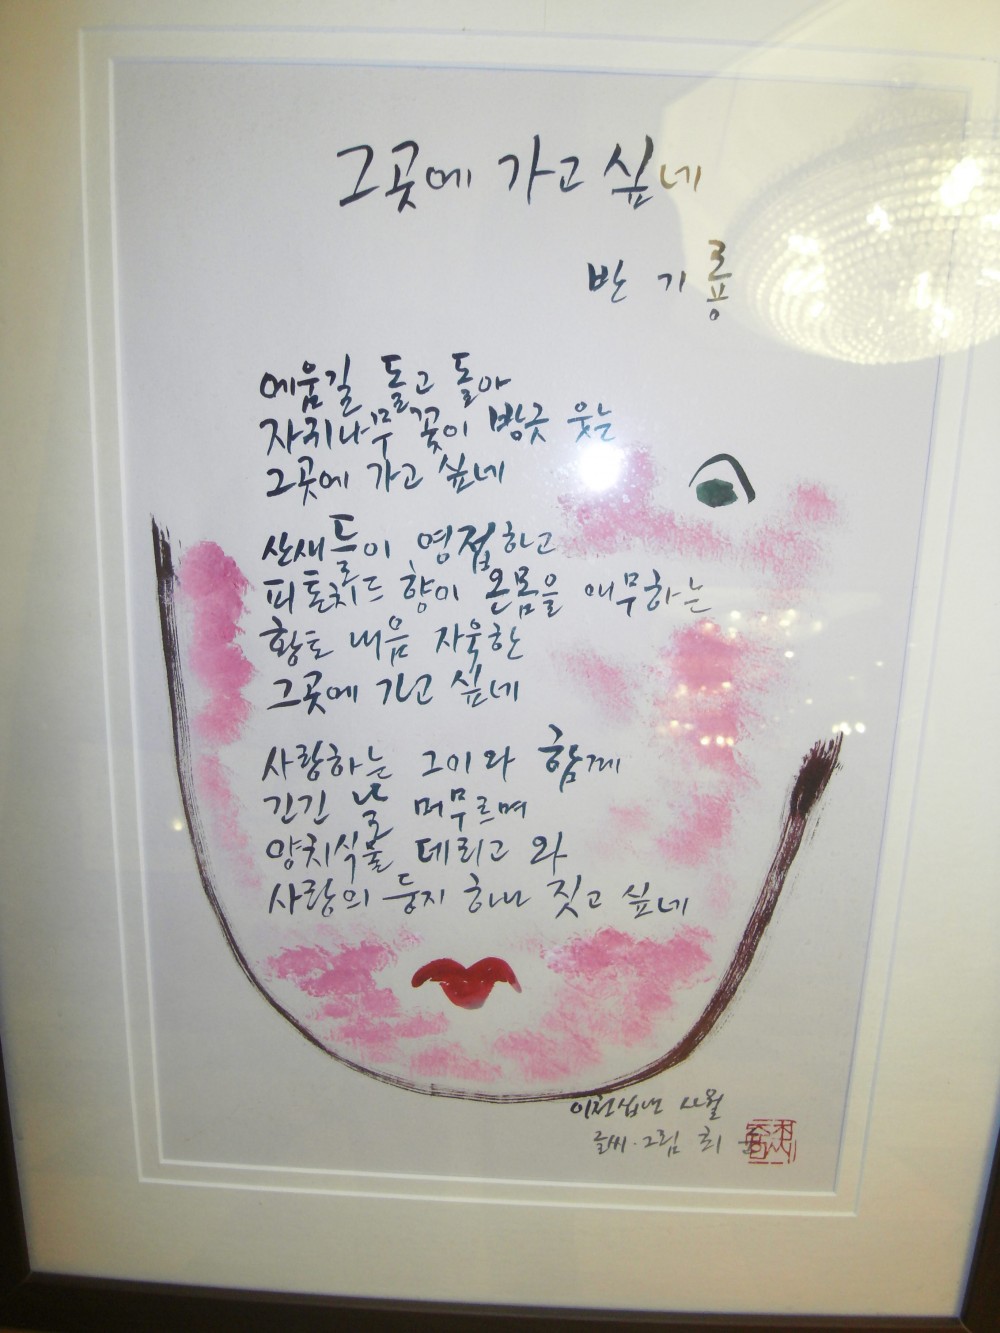 그곳에 가고 싶네
반 기 룡
에움길 돌고 돌아
자귀나무 꽃이 방긋 웃는
그곳에 가고 싶네
산새들이 영접하고
피톤치드 향이 온몸을 애무하는
황토 내음 자욱한
그곳에 가고 싶네
사랑하는 그이와 함께
긴긴 날 머무르며
양치식물 데리고 와
사랑의 둥지 하나 짓고 싶네
이천십년 사월
글씨·그림 최